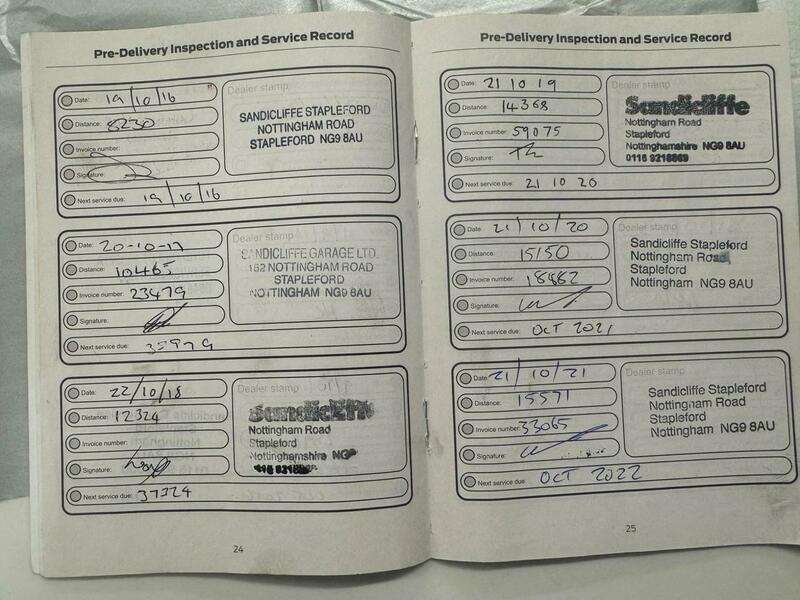 Pre-Delivery Inspection and Service Record
Date: 19/10/16
Distance: 8230
Invoice number:
Signature:
Next service due: 19/10/16
Dealer stamp
SANDICLIFFE STAPLEFORD
NOTTINGHAM ROAD
STAPLEFORD NG9 8AU
Date: 20-10-17
Distance: 10465
Invoice number: 23479
Signature:
Next service due: 35979
Dealer stamp
SANDICLIFFE GARAGE LTD.
152 NOTTINGHAM ROAD
STAPLEFORD
NOTTINGHAM NG9 8AU
Date: 22/10/18
Distance: 12324
Invoice number:
Signature:
Next service due: 37324
Dealer stamp
Sandicliffe
Nottingham Road
Stapleford
Nottinghamshire NG9
24
Pre-Delivery Inspection and Service Record
Date: 21 10 19
Distance: 14368
Invoice number: 59075
Signature:
Next service due: 21 10 20
Dealer stamp
Sandicliffe
Nottingham Road
Stapleford
Nottinghamshire NG9 8AU
0115 9218869
Date: 21/10/20
Distance: 15150
Invoice number: 18882
Signature:
Next service due: OCT 2021
Dealer stamp
Sandicliffe Stapleford
Nottingham Road
Stapleford
Nottingham NG9 8AU
Date: 21/10/21
Distance: 15571
Invoice number: 33065
Signature:
Next service due: OCT 2022
Dealer stamp
Sandicliffe Stapleford
Nottingham Road
Stapleford
Nottingham NG9 8AU
25